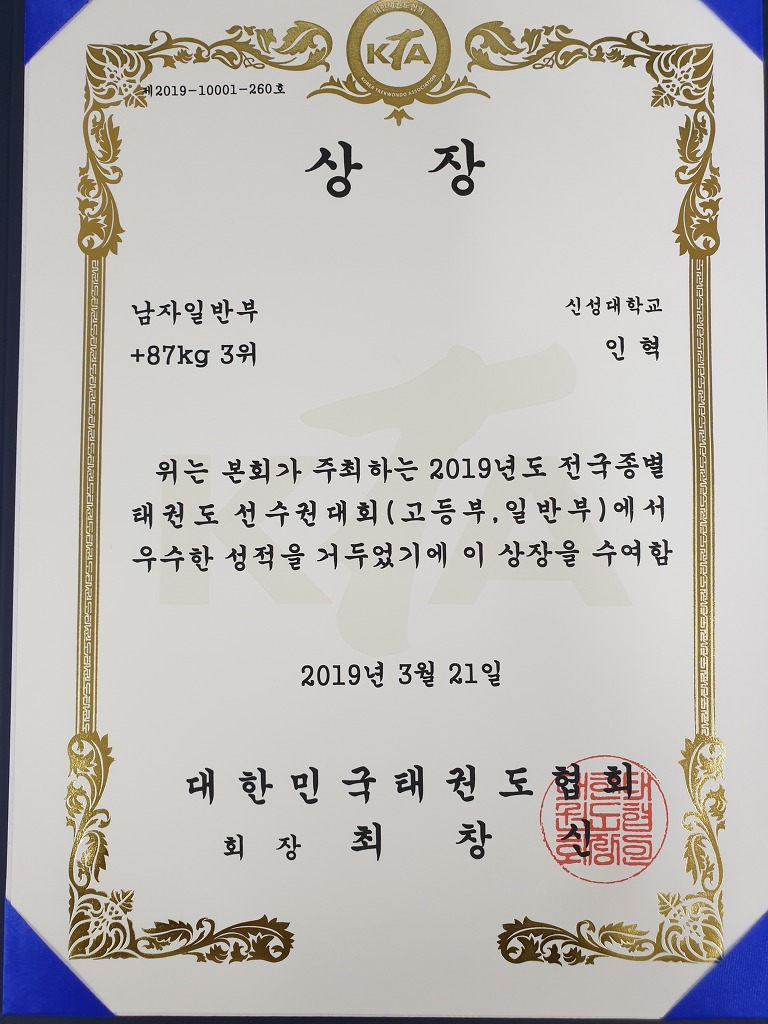 대한태권도협회
KTA
KOREA TAEKWONDO ASSOCIATION
제2019-10001-260호
상 장
남자일반부
+87kg 3위
신성대학교
인 혁
위는 본회가 주최하는 2019년도 전국종별
태권도 선수권대회(고등부,일반부)에서
우수한 성적을 거두었기에 이 상장을 수여함
KTA
2019년 3월 21일
대한민국태권도협회
회 장 최 창 신